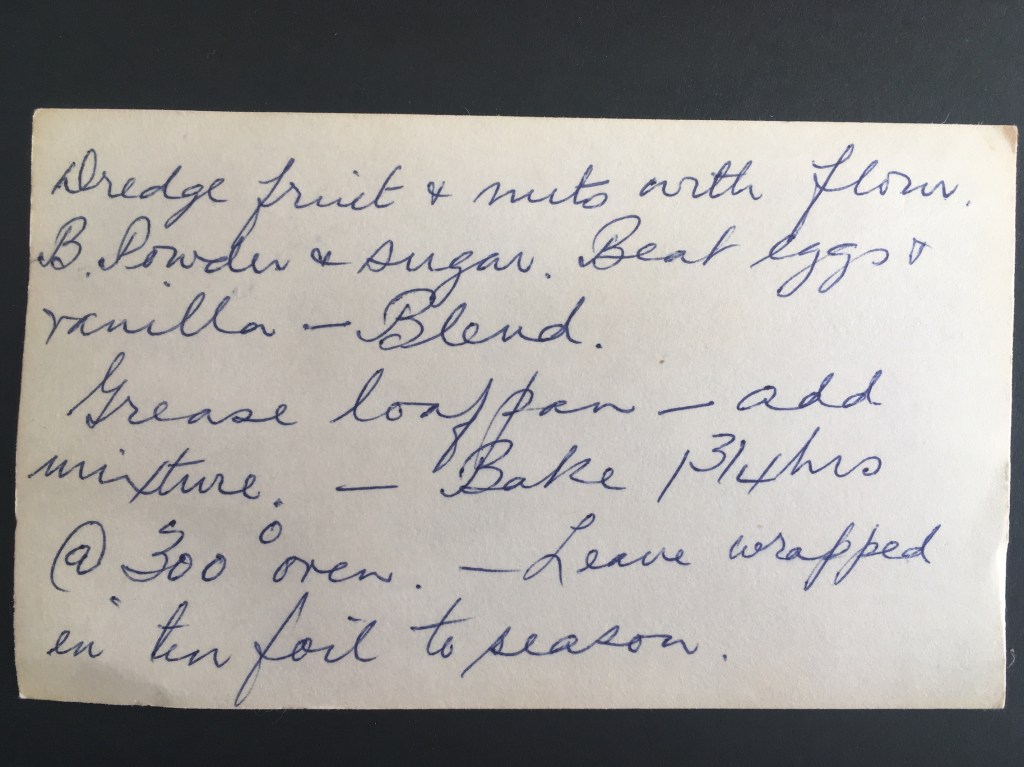 Dredge fruit & nuts with flour.
B. Powder & sugar. Beat eggs &
vanilla — Blend.
Grease loaf pan — add
mixture. — Bake 1 3/4 hrs
@ 300° oven. — Leave wrapped
in tin foil to season.